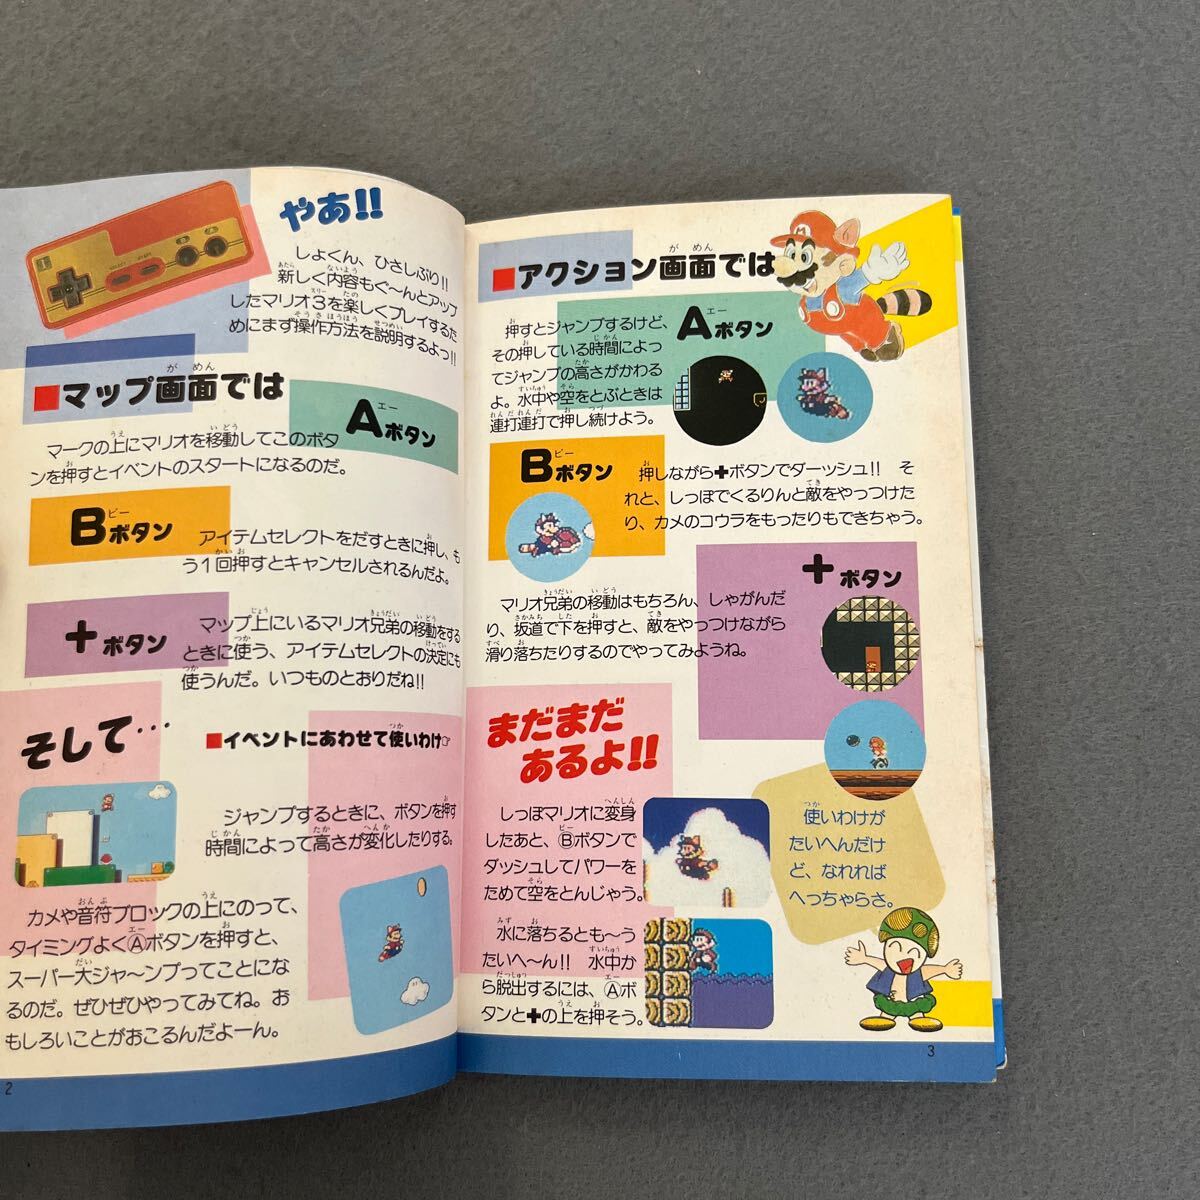 やあ!!
しょくん、ひさしぶり!!
新しく内容もぐ〜んとアップ
したマリオ3を楽しくプレイするた
めにまず操作方法を説明するよっ!!
■マップ画面では
Aボタン
マークの上にマリオを移動してこのボタ
ンを押すとイベントのスタートになるのだ。
Bボタン
アイテムセレクトをだすときに押し、も
う1回押すとキャンセルされるんだよ。
+ボタン
マップ上にいるマリオ兄弟の移動をする
ときに使う、アイテムセレクトの決定にも
使うんだ。いつものとおりだね!!
そして…
■イベントにあわせて使いわけ☞
ジャンプするときに、ボタンを押す
時間によって高さが変化したりする。
カメや音符ブロックの上にのって、
タイミングよくⒶボタンを押すと、
スーパー大ジャ〜ンプってことにな
るのだ。ぜひぜひやってみてね。お
もしろいことがおこるんだよーん。
2
■アクション画面では
Aボタン
押すとジャンプするけど、
その押している時間によっ
てジャンプの高さがかわる
よ。水中や空をとぶときは
連打連打で押し続けよう。
Bボタン
押しながら+ボタンでダーッシュ!! そ
れと、しっぽでくるりんと敵をやっつけた
り、カメのコウラをもったりもできちゃう。
+ボタン
マリオ兄弟の移動はもちろん、しゃがんだ
り、坂道で下を押すと、敵をやっつけながら
滑り落ちたりするのでやってみようね。
まだまだ
あるよ!!
しっぽマリオに変身
したあと、Ⓑボタンで
ダッシュしてパワーを
ためて空をとんじゃう。
水に落ちるとも〜う
たいへ〜ん!! 水中か
ら脱出するには、Ⓐボ
タンと+の上を押そう。
使いわけが
たいへんだけ
ど、なれれば
へっちゃらさ。
3